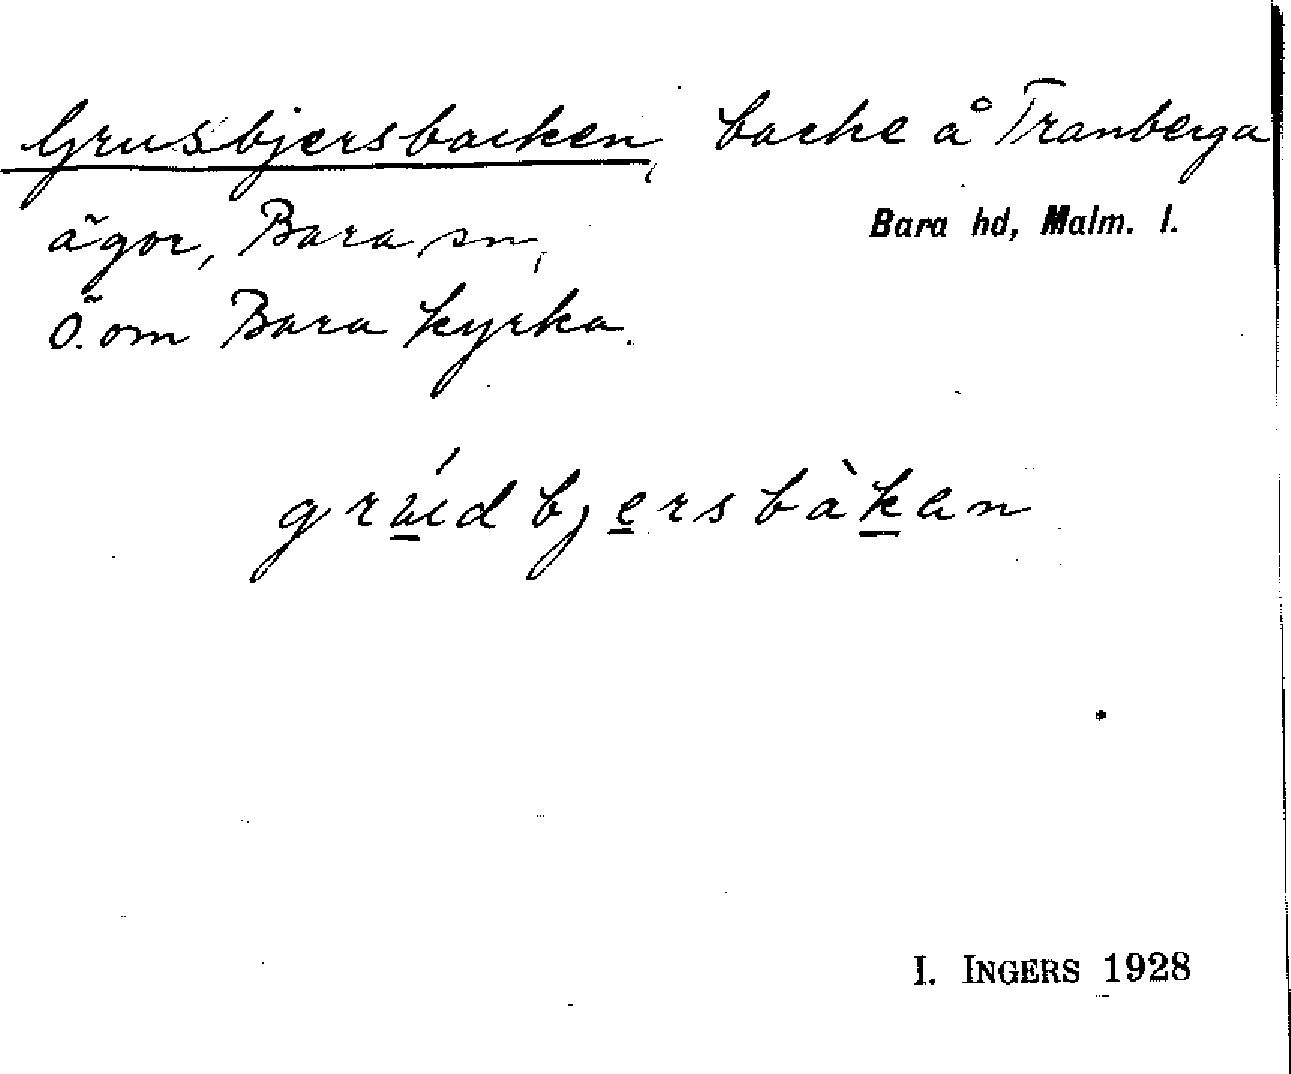 Grusbjersbacken, backe å Tranberga
ägor, Bara sn,
Bara hd, Malm. l.
Ö. om Bara kyrka.
bjersbàkan
I. INGERS 1928